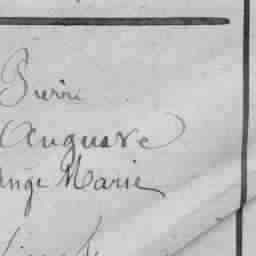 Pierre
Auguste
Ange Marie